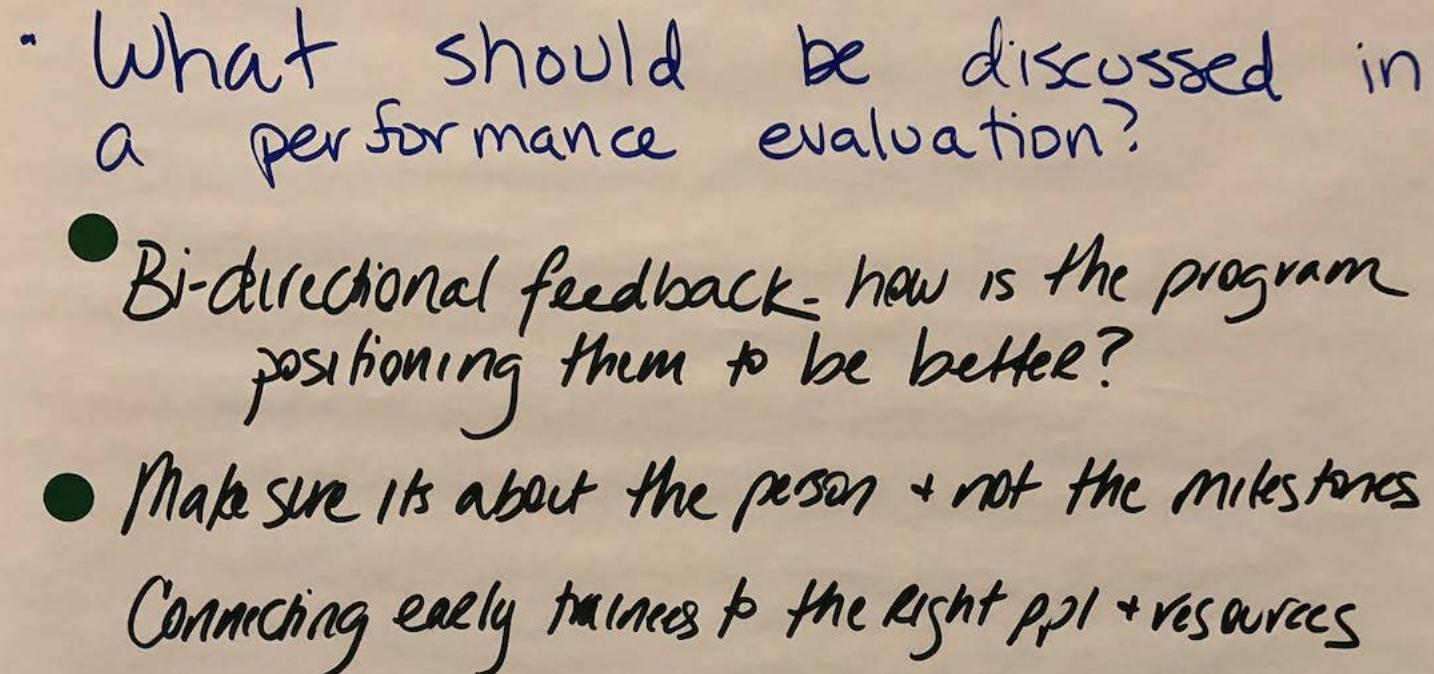 · What should be discussed in
a performance evaluation?
Bi-directional feedback - how is the program
positioning them to be better?
Make sure its about the person + not the milestones
Connecting early trainees to the right ppl + resources